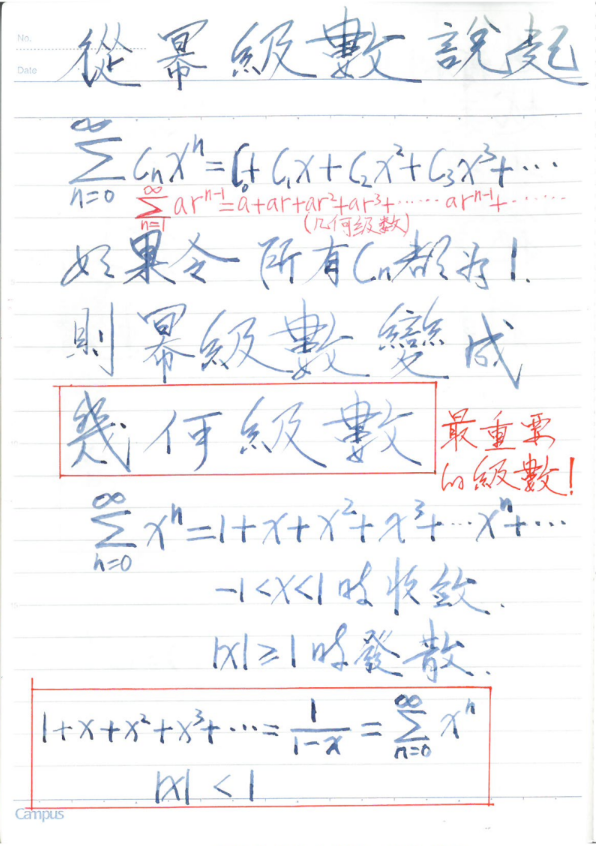 No.
Date
從冪級數說起
∑_{n=0}^{∞} Cₙxⁿ = C₀ + C₁x + C₂x² + C₃x³ + ⋯
∑_{n=1}^{∞} arⁿ⁻¹ = a + ar + ar² + ar³ + ⋯⋯ arⁿ⁻¹ + ⋯⋯
(几何級數)
如果令所有Cₙ都為1.
則冪級數變成
幾何級數
最重要
的級數!
∑_{n=0}^{∞} xⁿ = 1 + x + x² + x³ + ⋯ xⁿ + ⋯
-1 < x < 1 時收斂.
|x| ≥ 1 時發散.
1 + x + x² + x³ + ⋯ = \frac{1}{1-x} = ∑_{n=0}^{∞} xⁿ
|x| < 1
Campus